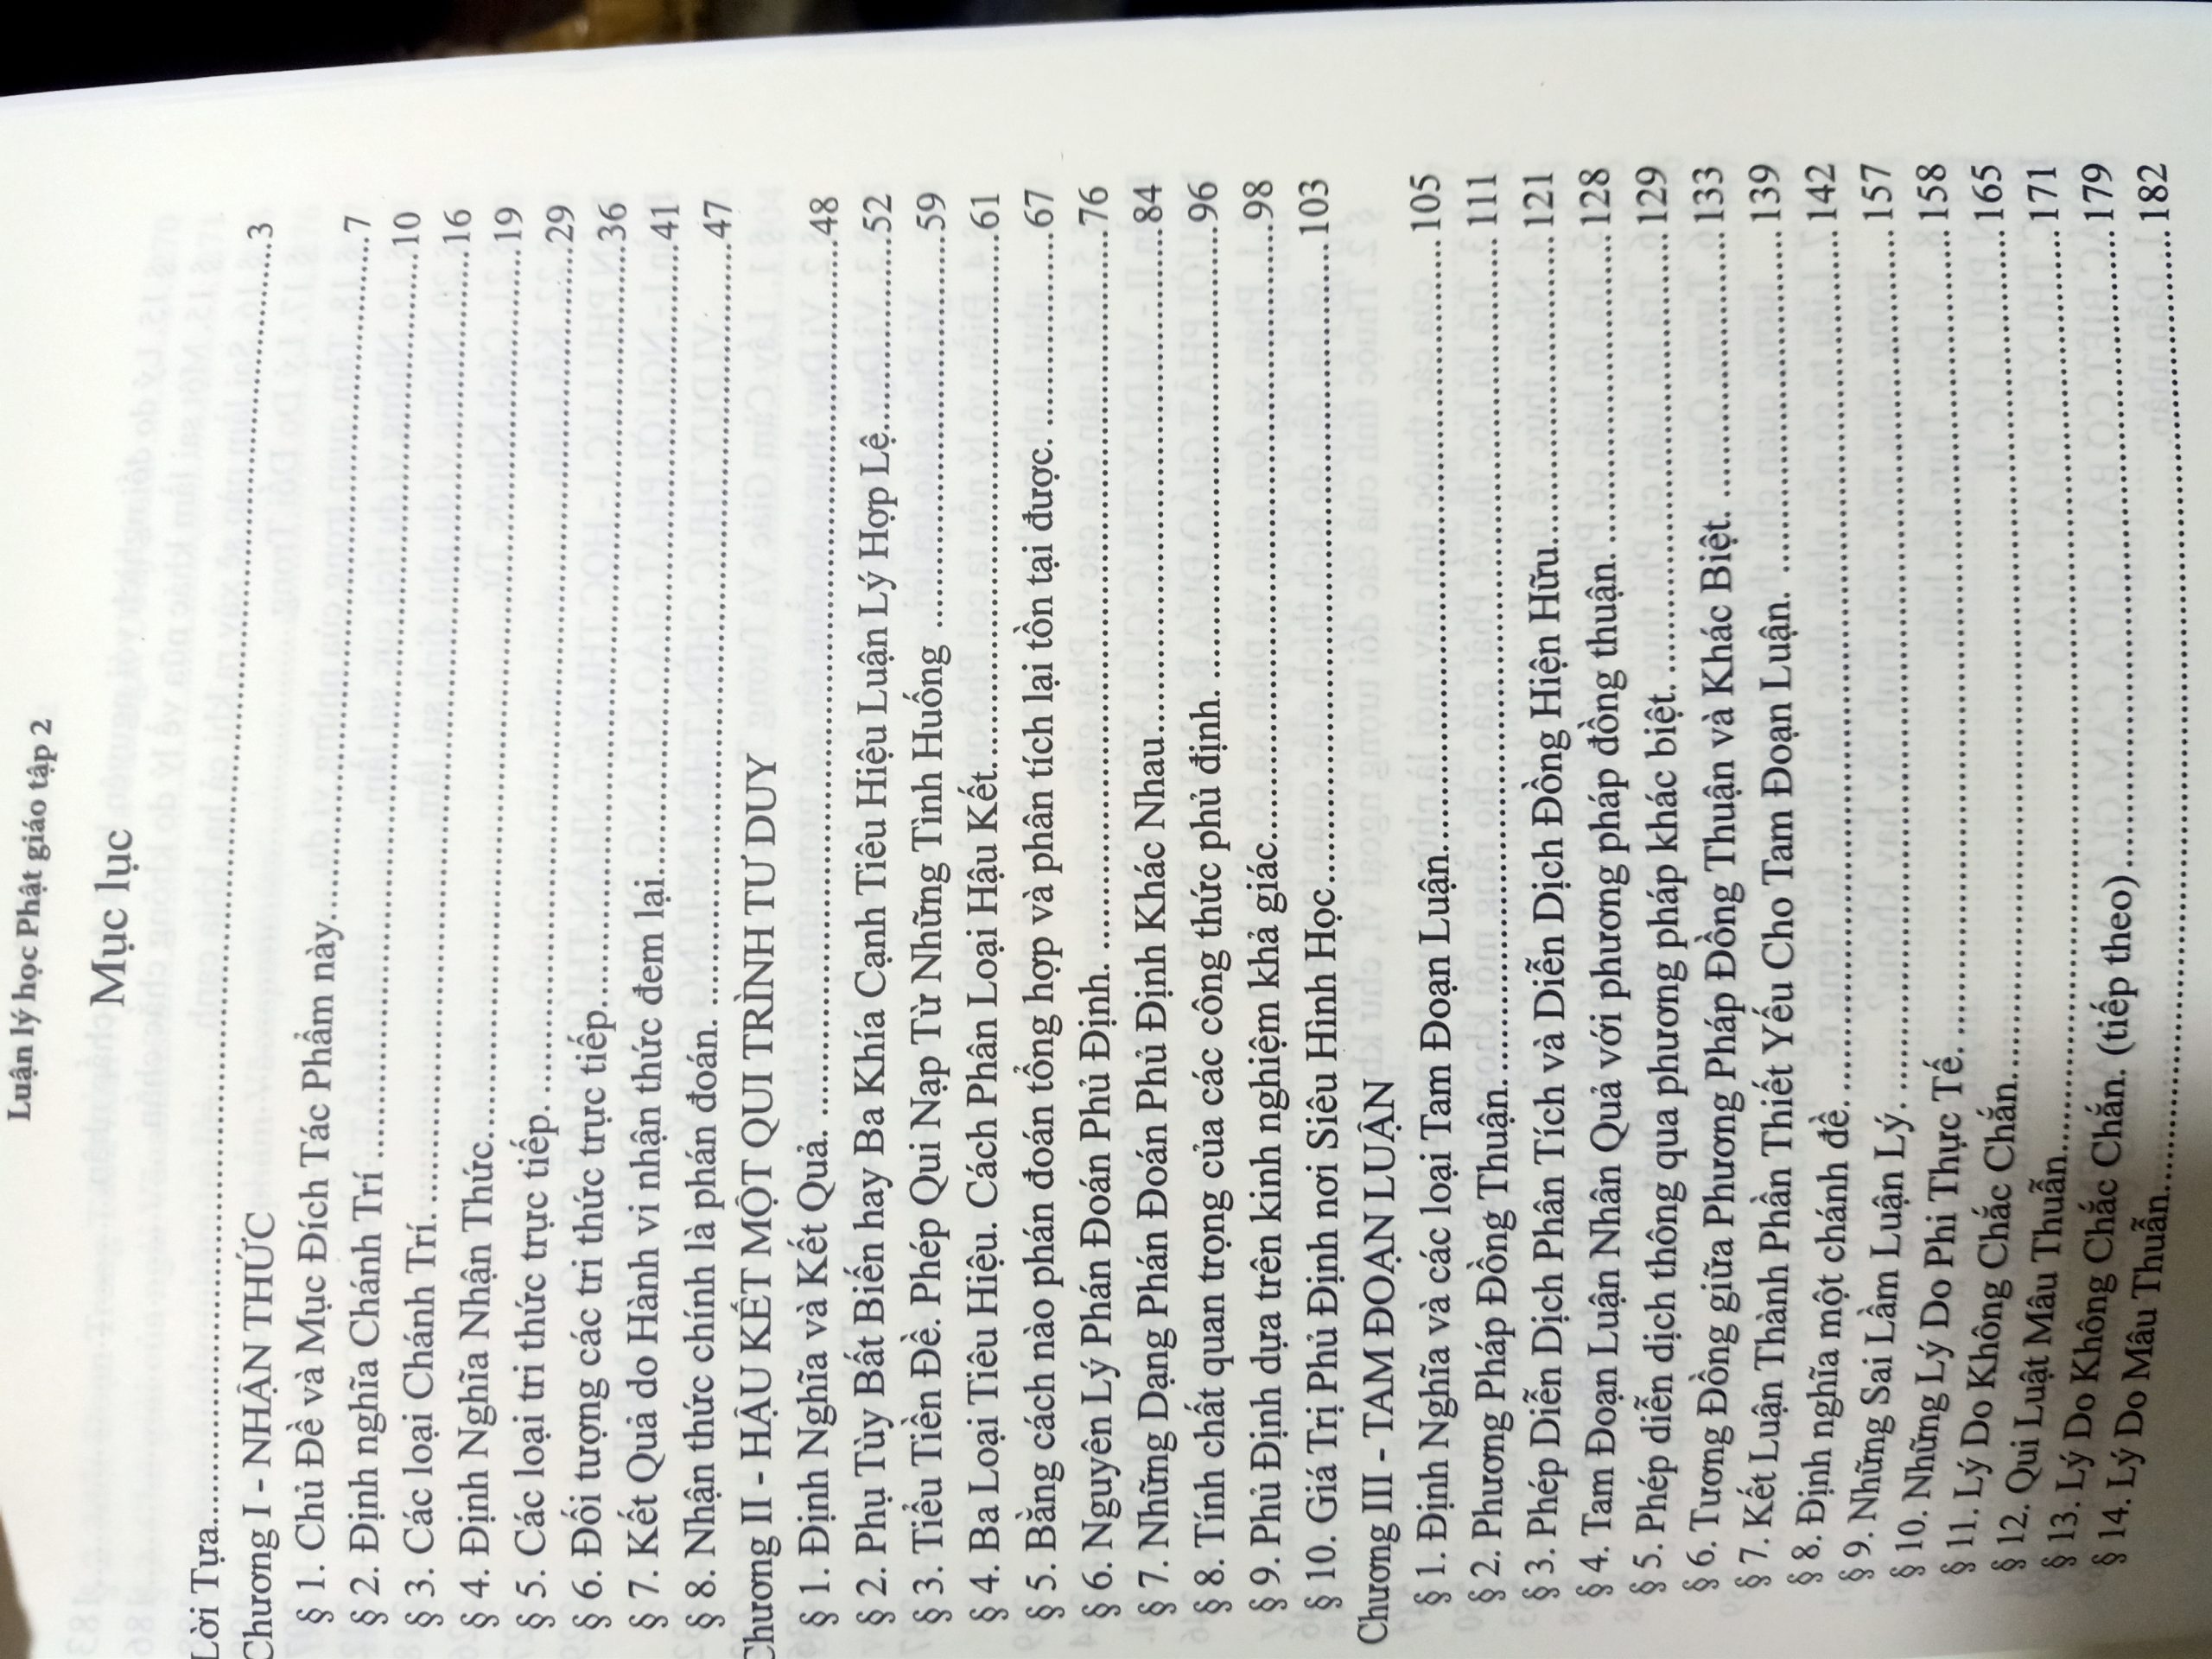 Luận lý học Phật giáo tập 2
Mục lục
Lời Tựa....................3
Chương I - NHẬN THỨC
§ 1. Chủ Đề và Mục Đích Tác Phẩm này....................7
§ 2. Định nghĩa Chánh Trí ....................10
§ 3. Các loại Chánh Trí. ....................16
§ 4. Định Nghĩa Nhận Thức....................19
§ 5. Các loại tri thức trực tiếp. ....................29
§ 6. Đối tượng các tri thức trực tiếp....................36
§ 7. Kết Quả do Hành vi nhận thức đem lại....................41
§ 8. Nhận thức chính là phán đoán. ....................47
Chương II - HẬU KẾT MỘT QUI TRÌNH TƯ DUY
§ 1. Định Nghĩa và Kết Quả. ....................48
§ 2. Phụ Tùy Bất Biến hay Ba Khía Cạnh Tiêu Hiệu Luận Lý Hợp Lệ....................52
§ 3. Tiểu Tiền Đề. Phép Qui Nạp Từ Những Tình Huống ....................59
§ 4. Ba Loại Tiêu Hiệu. Cách Phân Loại Hậu Kết....................61
§ 5. Bằng cách nào phán đoán tổng hợp và phân tích lại tồn tại được. ....................67
§ 6. Nguyên Lý Phán Đoán Phủ Định. ....................76
§ 7. Những Dạng Phán Đoán Phủ Định Khác Nhau....................84
§ 8. Tính chất quan trọng của các công thức phủ định. ....................96
§ 9. Phủ Định dựa trên kinh nghiệm khả giác....................98
§ 10. Giá Trị Phủ Định nơi Siêu Hình Học.................... 103
Chương III - TAM ĐOẠN LUẬN
§ 1. Định Nghĩa và các loại Tam Đoạn Luận.................... 105
§ 2. Phương Pháp Đồng Thuận.................... 111
§ 3. Phép Diễn Dịch Phân Tích và Diễn Dịch Đồng Hiện Hữu.................... 121
§ 4. Tam Đoạn Luận Nhân Quả với phương pháp đồng thuận. .................... 128
§ 5. Phép diễn dịch thông qua phương pháp khác biệt. .................... 129
§ 6. Tương Đồng giữa Phương Pháp Đồng Thuận và Khác Biệt. .................... 133
§ 7. Kết Luận Thành Phần Thiết Yếu Cho Tam Đoạn Luận. .................... 139
§ 8. Định nghĩa một chánh đề. .................... 142
§ 9. Những Sai Lầm Luận Lý. .................... 157
§ 10. Những Lý Do Phi Thực Tế. .................... 158
§ 11. Lý Do Không Chắc Chắn.................... 165
§ 12. Qui Luật Mâu Thuẫn.................... 171
§ 13. Lý Do Không Chắc Chắn. (tiếp theo).................... 179
§ 14. Lý Do Mâu Thuẫn.................... 182